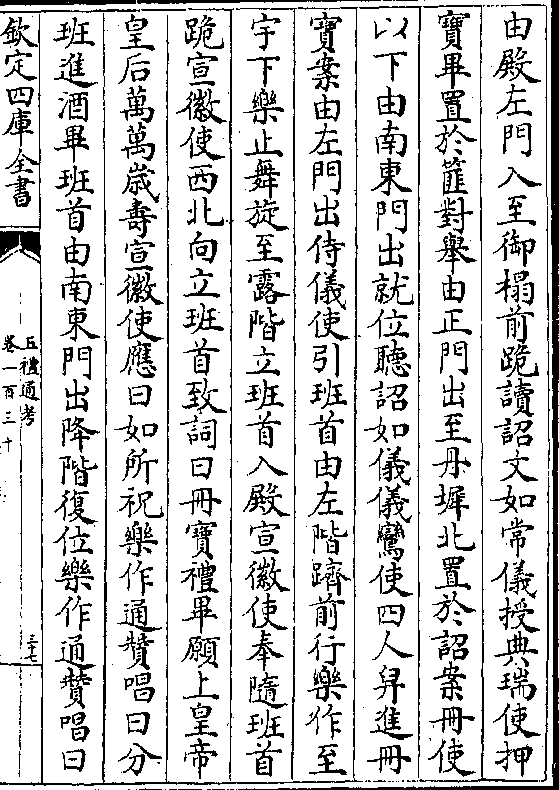 由殿左門入至御榻前跪讀詔文如常儀授典瑞使押
寶畢置於篚對舉由正門出至丹墀北置於詔案冊使
以下由南東門出就位聽詔如儀儀鸞使四人舁進冊
寶案由左門出侍儀使引班首由左階躋前行樂作至
宇下樂止舞旋至露階立班首入殿宣徽使奉隨班首
跪宣徽使西北向立班首致詞曰冊寶禮畢願上皇帝
皇后萬萬歲壽宣徽使應曰如所祝樂作通贊唱曰分
班進酒畢班首由南東門出降階復位樂作通贊唱曰
欽定四庫全書
五禮通考
卷一百三十
三十七